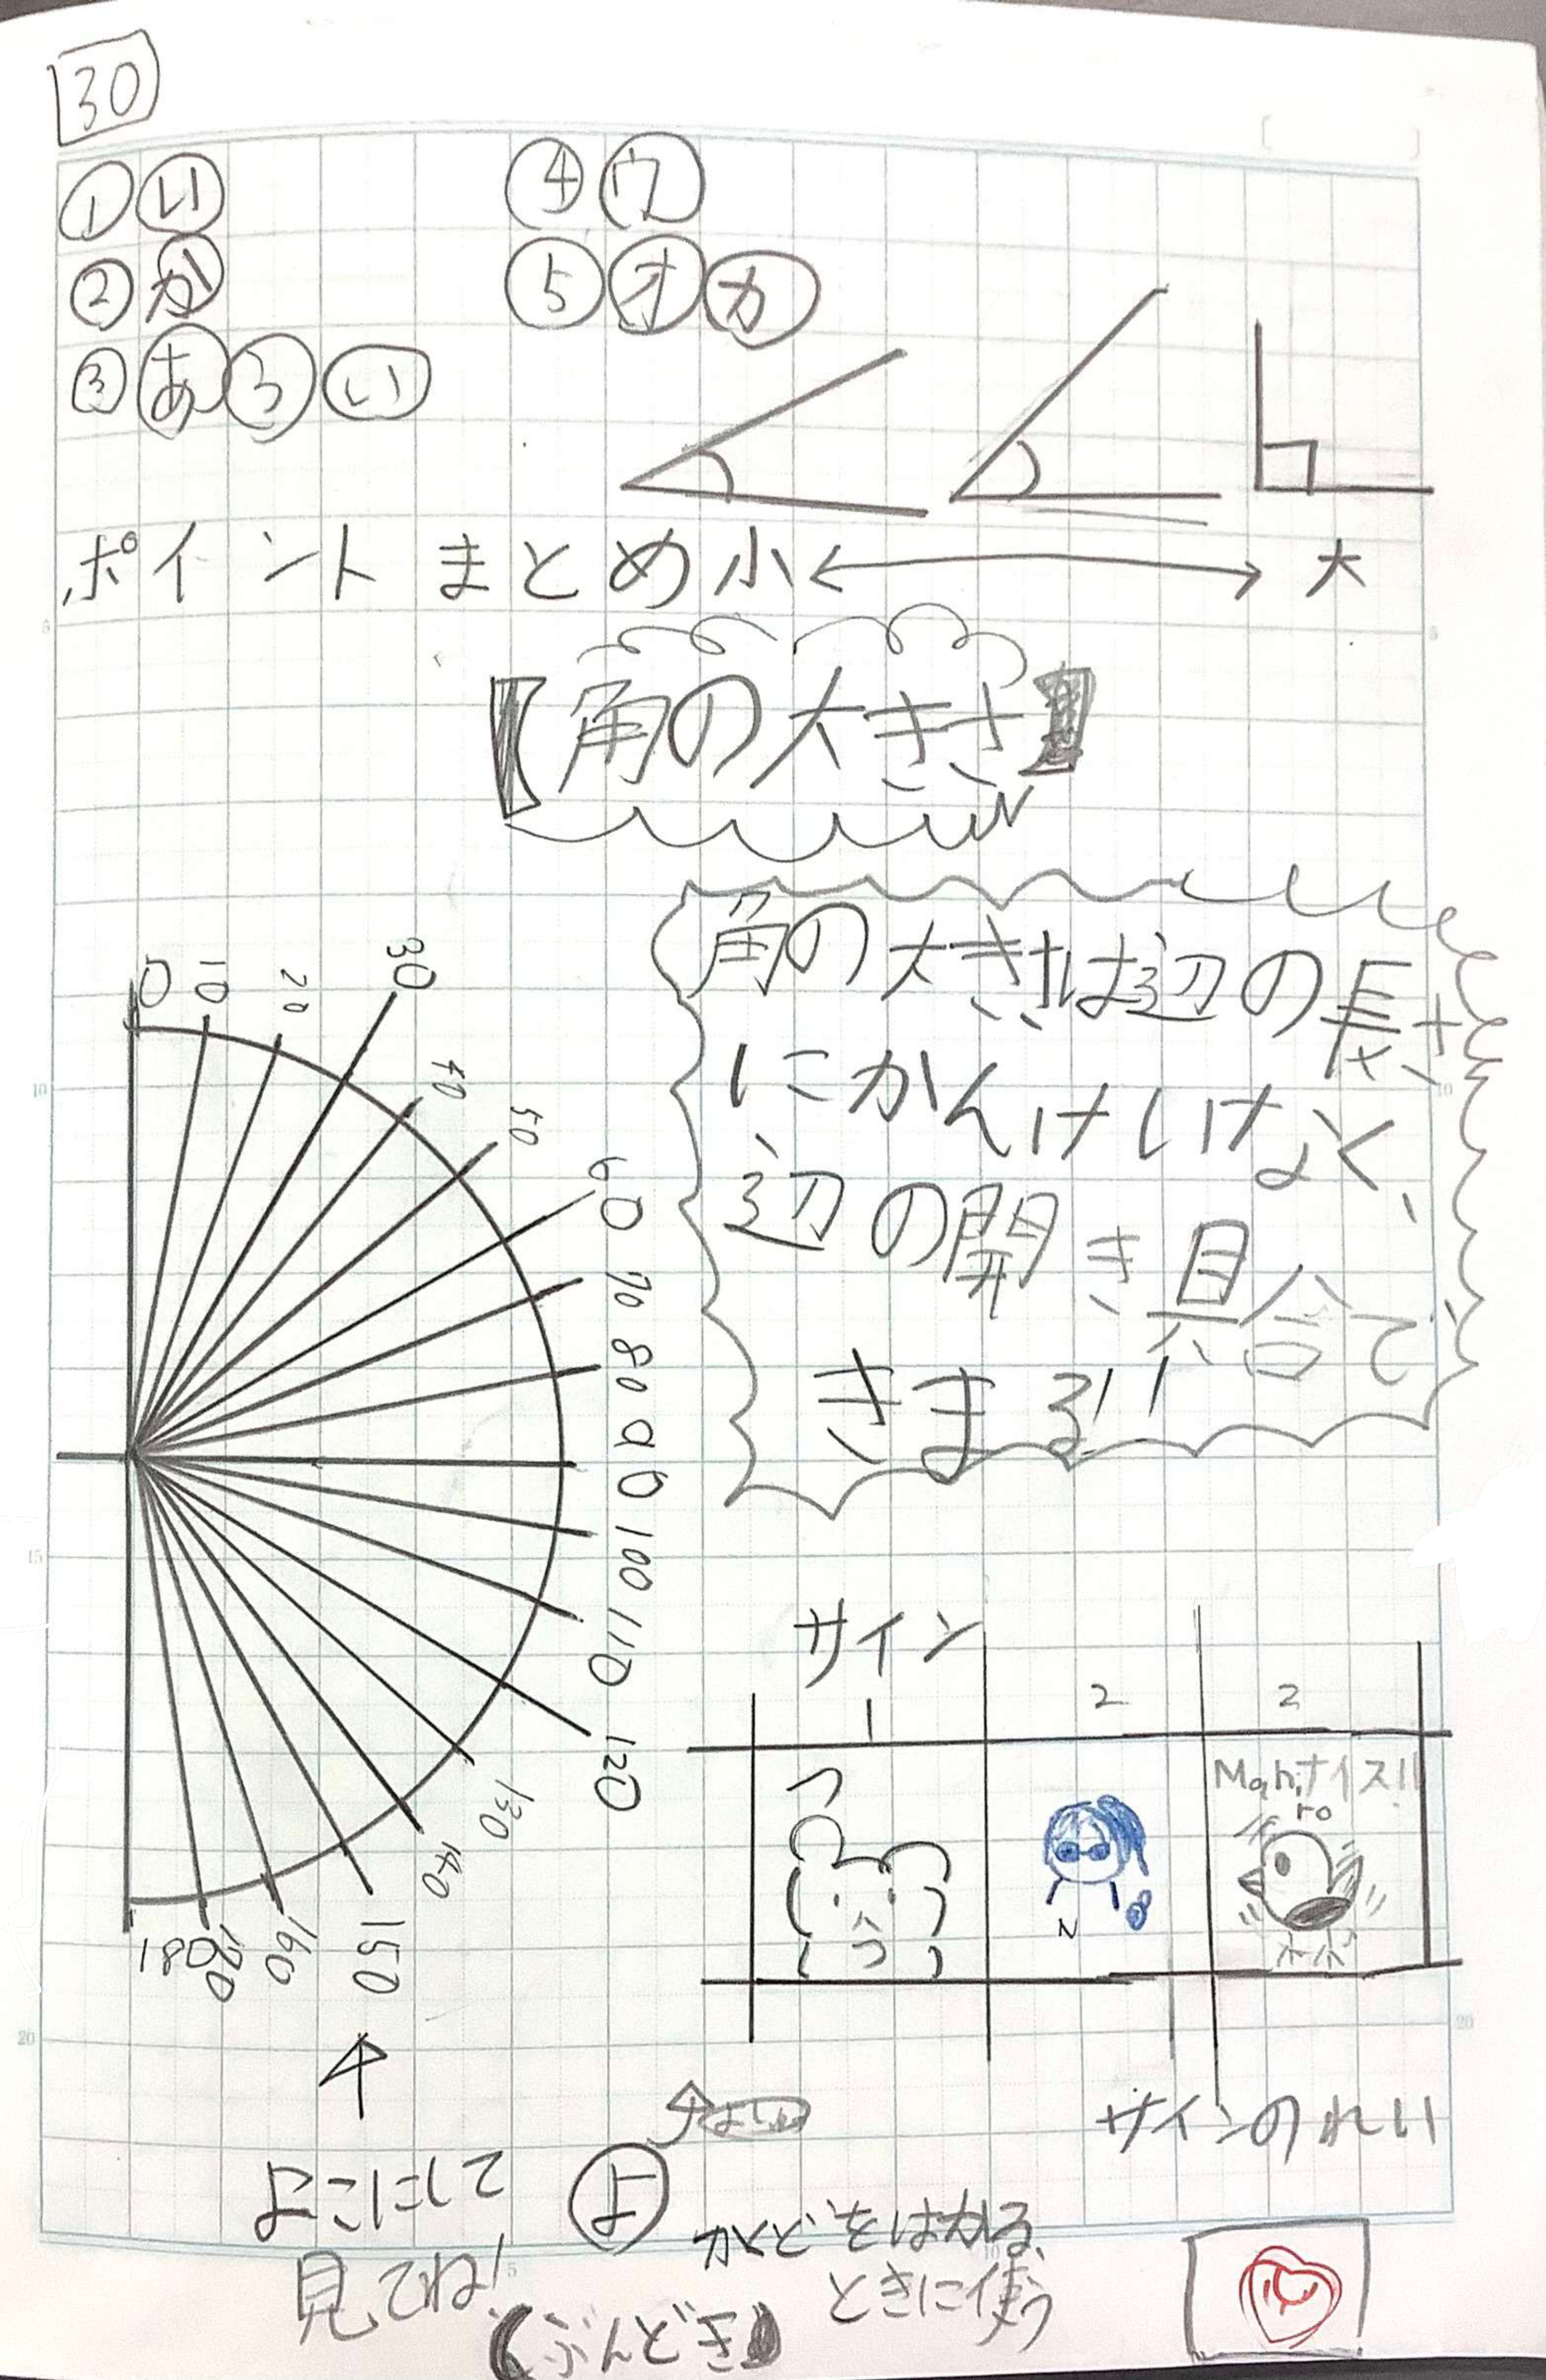 30
①い ④ウ
②か ⑤オカ
③あうい
ポイントまとめ 小 ⟷ 大
【角の大きさ】
角の大きさは辺の長さ
にかんけいなく、
辺の開き具合で
きまる!!
0
10
20
30
40
50
60
70
80
90
100
110
120
130
140
150
160
170
180
サイン
1 2 2
Mahiro ナイス!!
N
ポポ
サインのれい
よこにして
見てね!
よ
かくどをはかる
ときに使う
【ぶんどき】
5
10
15
20
5
10
20
5
10